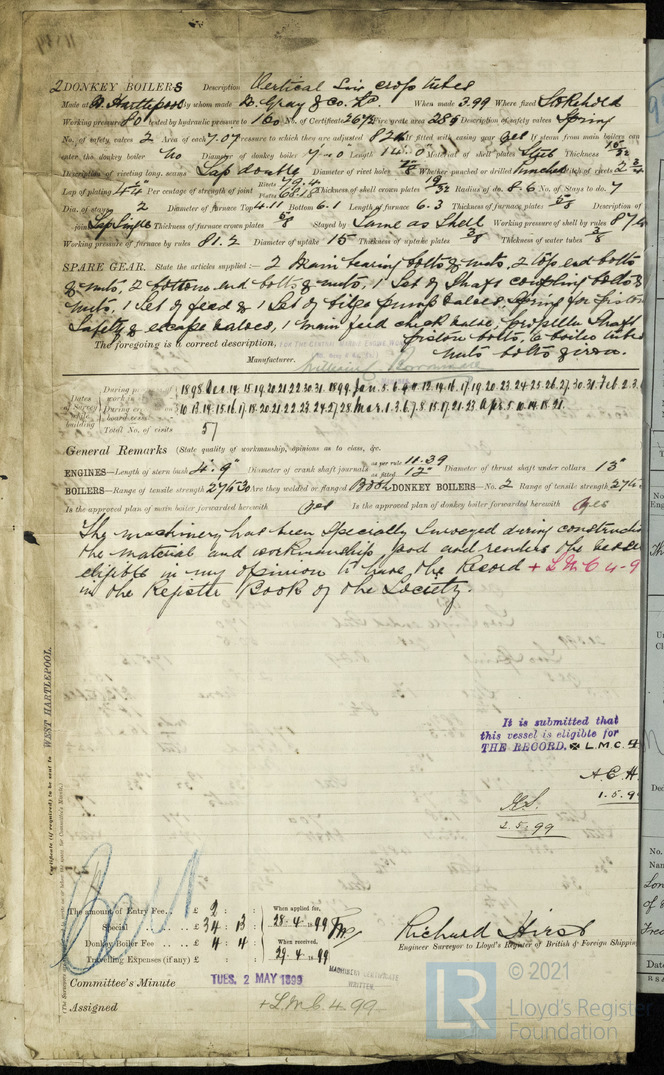 2 DONKEY BOILERS Description Vertical Six cross tubes
Made at W. Hartlepool by whom made W. Gray & Co. Ld. When made 3.99 Where fixed Stokehold
Working pressure 80 tested by hydraulic pressure to 160 No. of Certificate 2672 Fire grate area 28 Description of safety valves Spring
No. of safety valves 2 Area of each 7.07 Pressure to which they are adjusted 82 If fitted with easing gear yes If steam from main boilers can
enter the donkey boiler No Diameter of donkey boiler 7'-0" Length 14'-0" Material of shell plates Steel Thickness
Description of riveting long. seams Lap double Diameter of rivet holes Whether punched or drilled Punched Pitch of rivets 2 3/4
Lap of plating 4 1/4 Per centage of strength of joint Rivets 79.4 Plates 68.18 Thickness of shell crown plates 19/32 Radius of do. 8-6 No. of Stays to do. 7
Dia. of stays 2 Diameter of furnace Top 4.11 Bottom 6.1 Length of furnace 6.3 Thickness of furnace plates Description of
joint Lap Single Thickness of furnace crown plates Stayed by Same as Shell Working pressure of shell by rules 87
Working pressure of furnace by rules 81.2 Diameter of uptake 15" Thickness of uptake plates 3/8 Thickness of water tubes 3/8
SPARE GEAR. State the articles supplied:— 2 Main bearing bolts & nuts, 2 top end bolts
& nuts, 2 bottom end bolts & nuts, 1 Set of Shaft coupling bolts &
nuts, 1 Set of feed & 1 Set of bilge pump valves, Spring for piston
Safety & escape valves, 1 main feed check valve, propeller shaft
The foregoing is a correct description, piston bolts, 6 boiler tubes
Manufacturer. nuts bolts & iron.
Dates of Survey while building
During progress of work in shops 1898 Dec. 14 15 19 20 21 22 30 31 1899 Jan. 5 6 9 11 12 13 16 17 19 20 23 24 25 26 27 30 31 Feb 2 3
During erection on board vessel 10 13 14 15 16 17 19 20 21 22 23 24 27 28 Mar 1 3 6 7 8 15 17 21 23 Apl 5 10 14 15 21
Total No. of visits 51
General Remarks (State quality of workmanship, opinions as to class, &c.
ENGINES—Length of stern bush 4'.9" Diameter of crank shaft journals as per rule 11.39 as fitted 12" Diameter of thrust shaft under collars 13"
BOILERS—Range of tensile strength 27½ 30 Are they welded or flanged Both DONKEY BOILERS—No. 2 Range of tensile strength 27½
Is the approved plan of main boiler forwarded herewith yes Is the approved plan of donkey boiler forwarded herewith yes
The machinery has been Specially Surveyed during construction
the material and workmanship good and renders the vessel
eligible in my opinion to have the Record + LMC 4-9
in the Register Book of the Society.
Certificate (if required) to be sent to WEST HARTLEPOOL.
It is submitted that
this vessel is eligible for
THE RECORD. ✠ L.M.C. 4
1.5.9
2.5.99
The amount of Entry Fee .. £ 2 : : When applied for,
Special .. .. £ 34 : 13 : 28.4.99
Donkey Boiler Fee .. £ 4 : 4 : When received,
Travelling Expenses (if any) £ : : 29.4.99
Richard Hirst
Engineer Surveyor to Lloyd's Register of British & Foreign Shipping
MACHINERY CERTIFICATE
WRITTEN.
Committee's Minute TUES. 2 MAY 1899
Assigned + L.M.C. 4.99
LR © 2021
Lloyd's Register
Foundation